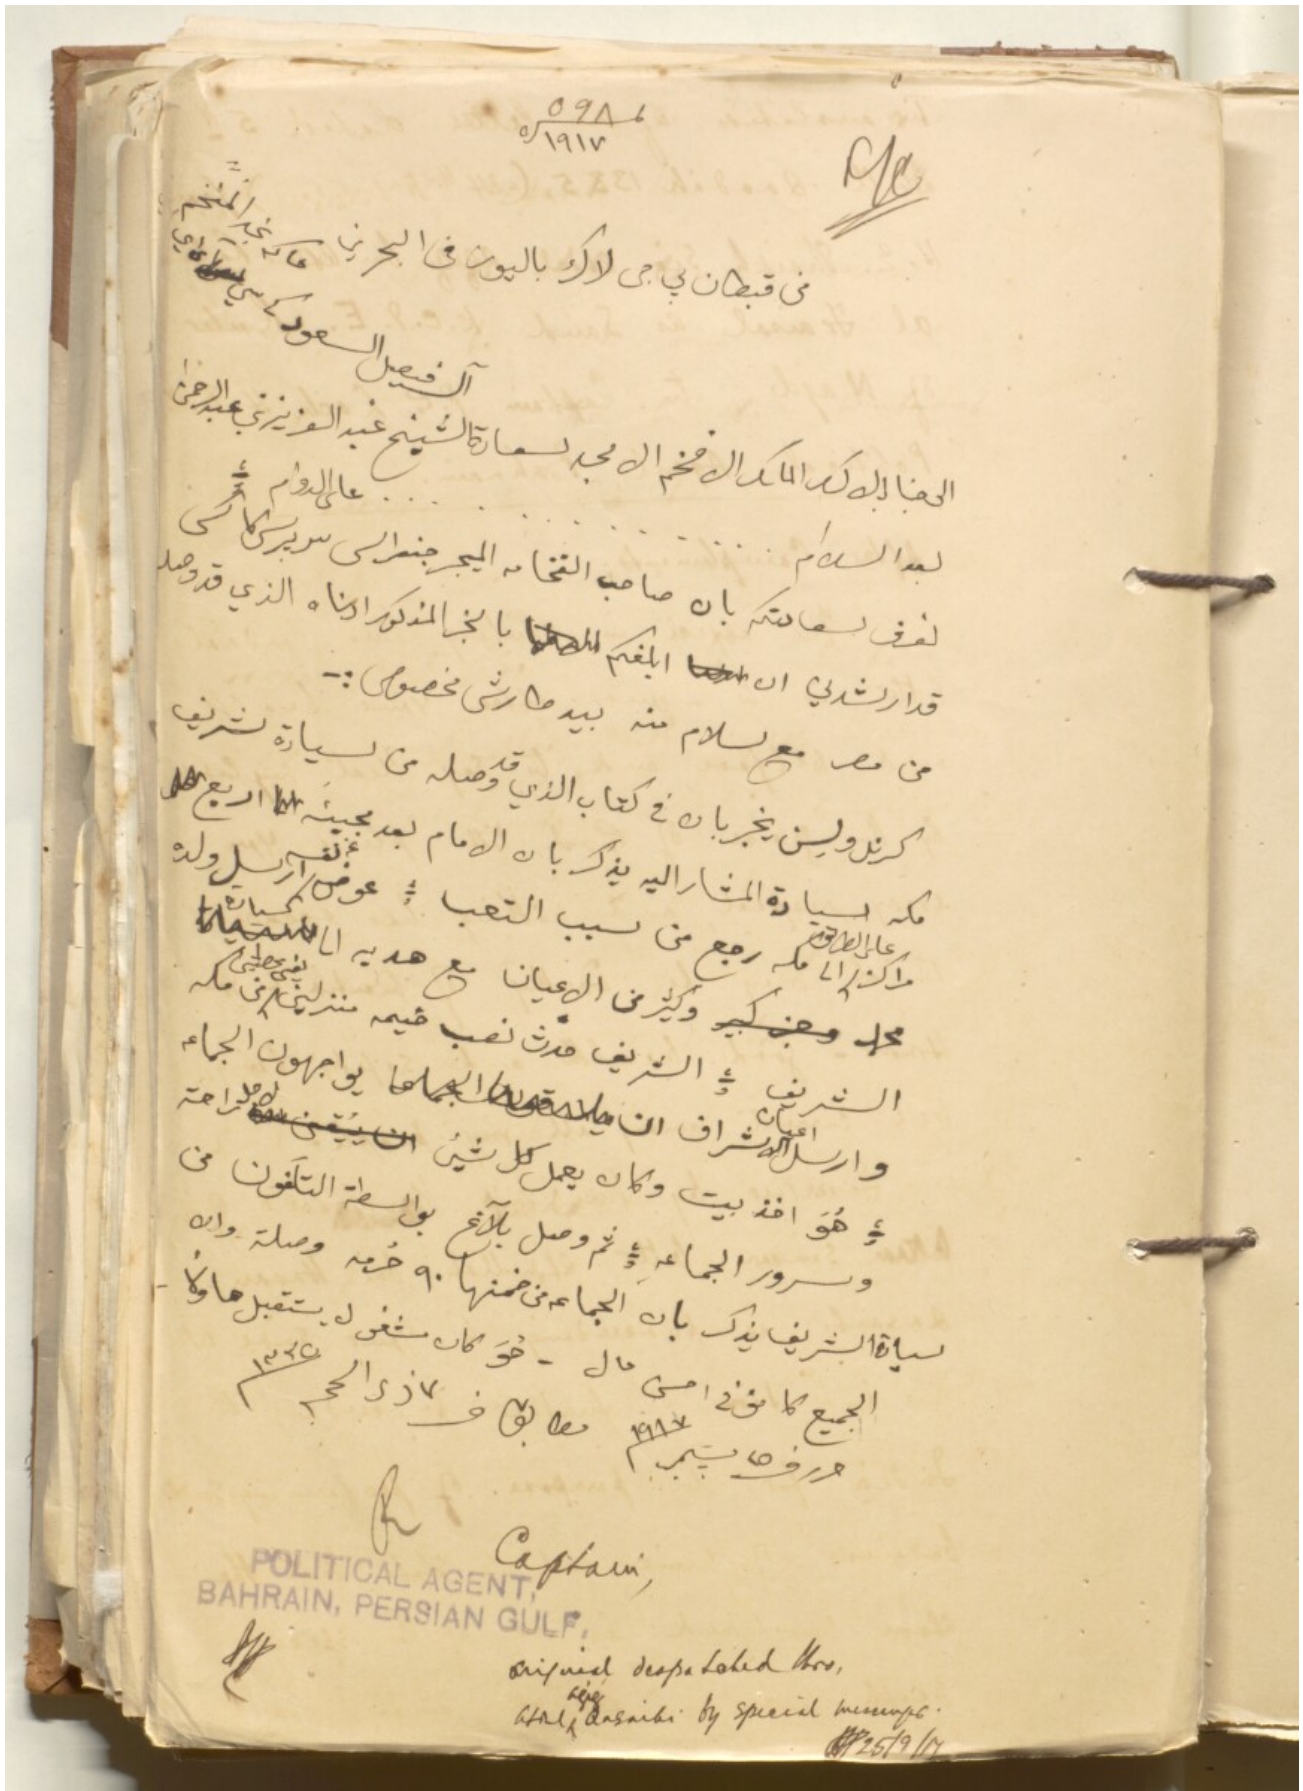 ٥٩٨
١٩١٧
من قبطان بي جي لاك باليوز في البحرين
حاكم نجد المفخم
آل فيصل السعود كي سي آي إي
الى جناب الاكرم الافخم الامجد سعادة الشيخ عبد العزيز بن عبد الرحمن
بعد السلام . . . . . . . . . . على الدوام
نعرف سعادتكم بان صاحب الفخامه الميجر جنرال سر برسي كاكس
قد ارشدني ان ابلغكم بالخبر المذكور ادناه الذي قد وصله
من مصر مع سلام منه بيد طارش مخصوص :-
كرنل ولسن يخبر بان في كتاب الذي قد وصله من سيادة شريف
مكه سيادة المشار اليه يذكر بان الامام بعد مجيئه اربع
مراكز على الطريق الى مكه رجع من سبب التعب عوض نفسه ارسل ولده
محمد وكثير من الاعيان مع هديه الى سيادة
الشريف الشريف نصب خيمه منزلين من مكه
وارسل اعيان الاشراف ان يواجهون الجماعه
هُوَ اخذ بيت وكان يعمل كل شيئ لاجل راحة
وسرور الجماعه ثم وصل بلاغ بواسطة التلفون من
سيادة الشريف يذكر بان الجماعه من ضمنها ٩٠ حُرمه وصلت وان
الجميع كانوا في احسن حال - هُوَ كان مشغول يستقبلها
حرر في سبتمبر ١٩١٧ مطابق في ذي الحجه ١٣٣٥
Captain,
POLITICAL AGENT,
BAHRAIN, PERSIAN GULF.
original despatched thro,
Abdul Aziz Qasaibi by special messenger.
25/9/17